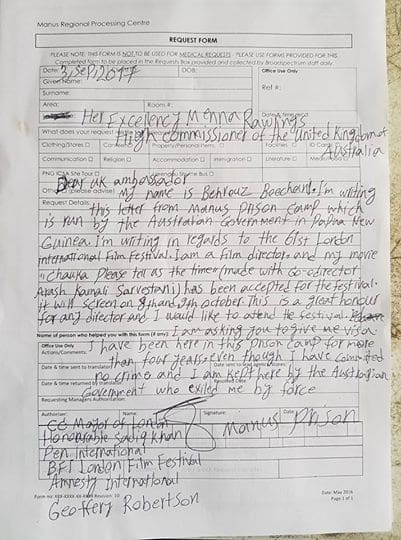 Manus Regional Processing Centre
REQUEST FORM
PLEASE NOTE: THIS FORM IS NOT TO BE USED FOR MEDICAL REQUESTS - PLEASE USE FORMS PROVIDED FOR THIS.
Completed form to be placed in the Requests Box provided and collected by Broadspectrum staff daily
Date: 3/Sep/2017 DOB: Office Use Only
Given Name:
Surname: Ref #:
Area: Room #:
Her Excellency Menna Rawlings
What does your request
High commissioner of the United Kingdom of Australia
Clothing/Stores Property/Personal Items Facilities ID Card
Communication Religion Accommodation Immigration Literature
PNG ICSA Site Tour Bus
Dear UK ambassador
Other (please advise)
My name is Behrouz Boochani. I'm writing
Request Details:
this letter from Manus Prison Camp which
is run by the Australian Government in Papua New
Guinea. I'm writing in regards to the 61st London
international Film Festival. I am a film director and my movie
"chauka Please tell us the time" (made with Co-director
Arash Kamali Sarvestani) has been accepted for the festival.
it will screen on 8th and 9th october. This is a great honour
for any director and I would like to attend the festival.
Name of person who helped you with this form (if any):
I am asking you to give me visa.
Office Use Only
I have been here in this prison camp for more
Actions/Comments:
than four years, even though I have committed
Date & time sent to translator
no crime and I am kept here by the Australian
Date & time returned by translator
Government who exiled me by force
Requesting Managers Authorization:
Authoriser: Name: Signature: Date
Manus Prison
CC Mayor of London
Honourable Sadiq Khan
Pen International
BFI London Film Festival
Amnesty International
Geoffery Robertson
Date: May 2016
Page 1 of 1